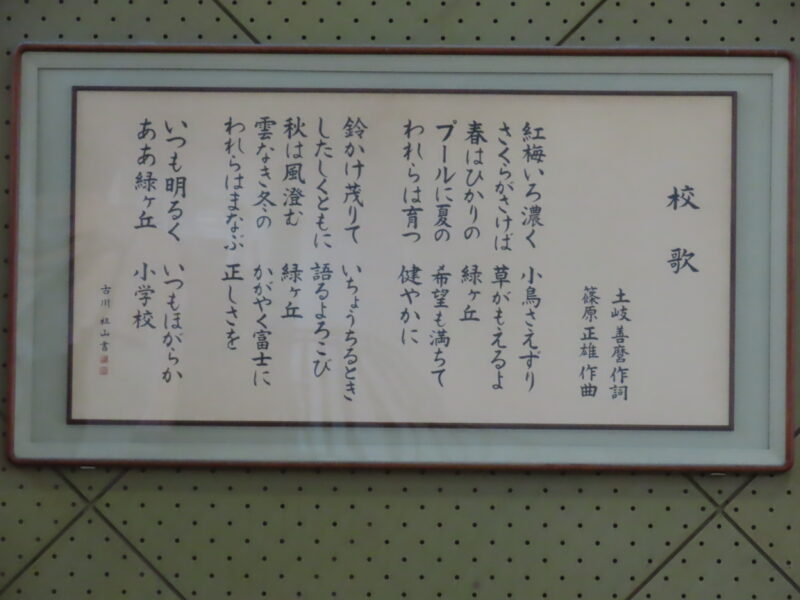 校歌
土岐善麿作詞
篠原正雄作曲
紅梅いろ濃く 小鳥さえずり
さくらがさけば 草がもえるよ
春はひかりの 緑ヶ丘
プールに夏の 希望も満ちて
われらは育つ 健やかに
鈴かけ茂りて いちょうちるとき
したしくともに 語るよろこび
秋は風澄む 緑ヶ丘
雲なき冬の かがやく富士に
われらはまなぶ 正しさを
いつも明るく いつもほがらか
ああ緑ヶ丘 小学校
古川 祖山書